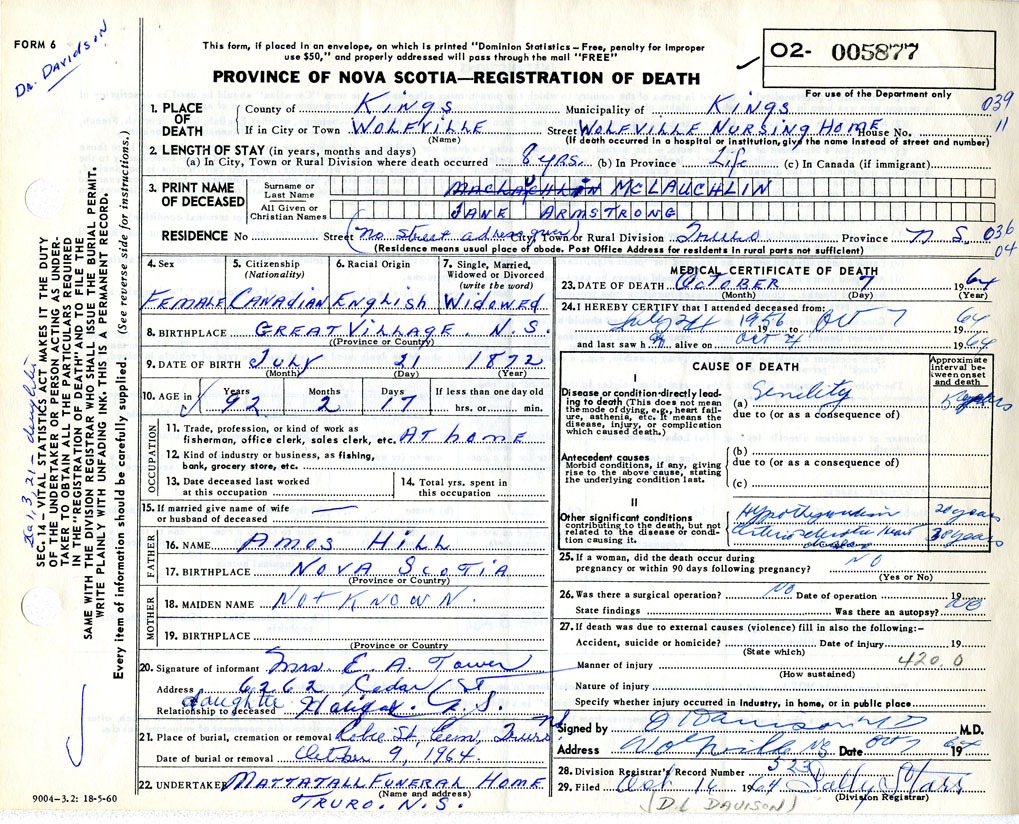 FORM 6
Dr. Davidson
This form, if placed in an envelope, on which is printed "Dominion Statistics – Free, penalty for improper
use $50," and properly addressed will pass through the mail "FREE"
PROVINCE OF NOVA SCOTIA—REGISTRATION OF DEATH
02- 005877
For use of the Department only
039
11
1. PLACE OF DEATH
County of Kings Municipality of Kings
If in City or Town Wolfville Street Wolfville Nursing Home House No.
(Name) (If death occurred in a hospital or institution, give the name instead of street and number)
2. LENGTH OF STAY (in years, months and days)
(a) In City, Town or Rural Division where death occurred 8 yrs. (b) In Province Life (c) In Canada (if immigrant)
3. PRINT NAME OF DECEASED
Surname or Last Name McLAUCHLIN
All Given or Christian Names JANE ARMSTRONG
RESIDENCE No Street (No street address given) City, Town or Rural Division Truro Province N.S. 036
04
(Residence means usual place of abode. Post Office Address for residents in rural parts not sufficient)
4. Sex 5. Citizenship (Nationality) 6. Racial Origin 7. Single, Married, Widowed or Divorced (write the word)
Female Canadian English Widowed
8. BIRTHPLACE Great Village. N.S.
(Province or Country)
9. DATE OF BIRTH July 21 1872
(Month) (Day) (Year)
10. AGE in Years Months Days If less than one day old
92 2 17 hrs. or min.
OCCUPATION
11. Trade, profession, or kind of work as
fisherman, office clerk, sales clerk, etc. At home
12. Kind of industry or business, as fishing,
bank, grocery store, etc.
13. Date deceased last worked
at this occupation
14. Total yrs. spent in
this occupation
15. If married give name of wife
or husband of deceased —
FATHER
16. NAME Amos Hill
17. BIRTHPLACE Nova Scotia
(Province or Country)
MOTHER
18. MAIDEN NAME Not Known.
19. BIRTHPLACE
(Province or Country
20. Signature of informant Mrs. E. A. Tower
Address 6262 Cedar St
Relationship to deceased daughter Halifax. N.S.
21. Place of burial, cremation or removal Robie St. Cem, Truro
Date of burial or removal October 9, 1964
22. UNDERTAKER Mattatall Funeral Home
(Name and address)
Truro. N.S.
9004–3.2: 18-5-60
MEDICAL CERTIFICATE OF DEATH
23. DATE OF DEATH October 7 1964
(Month) (Day) (Year)
24. I HEREBY CERTIFY that I attended deceased from:
July 24 1956 19 to Oct 7 1964
and last saw h alive on Oct 4 1964
CAUSE OF DEATH
Approximate interval between onset and death
I
Disease or condition directly leading to death (This does not mean
the mode of dying, e.g., heart failure, asthenia, etc. It means the
disease, injury, or complication
which caused death.)
(a) Senility years
due to (or as a consequence of)
Antecedent causes
Morbid conditions, if any, giving
rise to the above cause, stating
the underlying condition last.
(b)
due to (or as a consequence of)
(c)
II
Other significant conditions
contributing to the death, but not
related to the disease or condition causing it.
Hypothyroidism 20 years
Arteriosclerotic heart disease 30 years
25. If a woman, did the death occur during
pregnancy or within 90 days following pregnancy? NO
(Yes or No)
26. Was there a surgical operation? NO Date of operation 19
State findings Was there an autopsy? NO
27. If death was due to external causes (violence) fill in also the following:–
Accident, suicide or homicide? Date of injury 19
(State which)
Manner of injury 420.0
(How sustained)
Nature of injury
Specify whether injury occurred in industry, in home, or in public place
Signed by D Davison MD M.D.
Address Wolfville NS Date Oct 7 1964
28. Division Registrar's Record Number 523
29. Filed Oct 16 1964 Sally Starr
(Division Registrar)
(D.L DAVISON)
SEC. 14 – VITAL STATISTICS ACT MAKES IT THE DUTY
OF THE UNDERTAKER OR PERSON ACTING AS UNDERTAKER TO OBTAIN ALL THE PARTICULARS REQUIRED
IN THE "REGISTRATION OF DEATH" AND TO FILE THE
SAME WITH THE DIVISION REGISTRAR WHO SHALL ISSUE THE BURIAL PERMIT.
WRITE PLAINLY WITH UNFADING INK. THIS IS A PERMANENT RECORD.
Every item of information should be carefully supplied. (See reverse side for instructions.)
1, 3, 21 – daughter